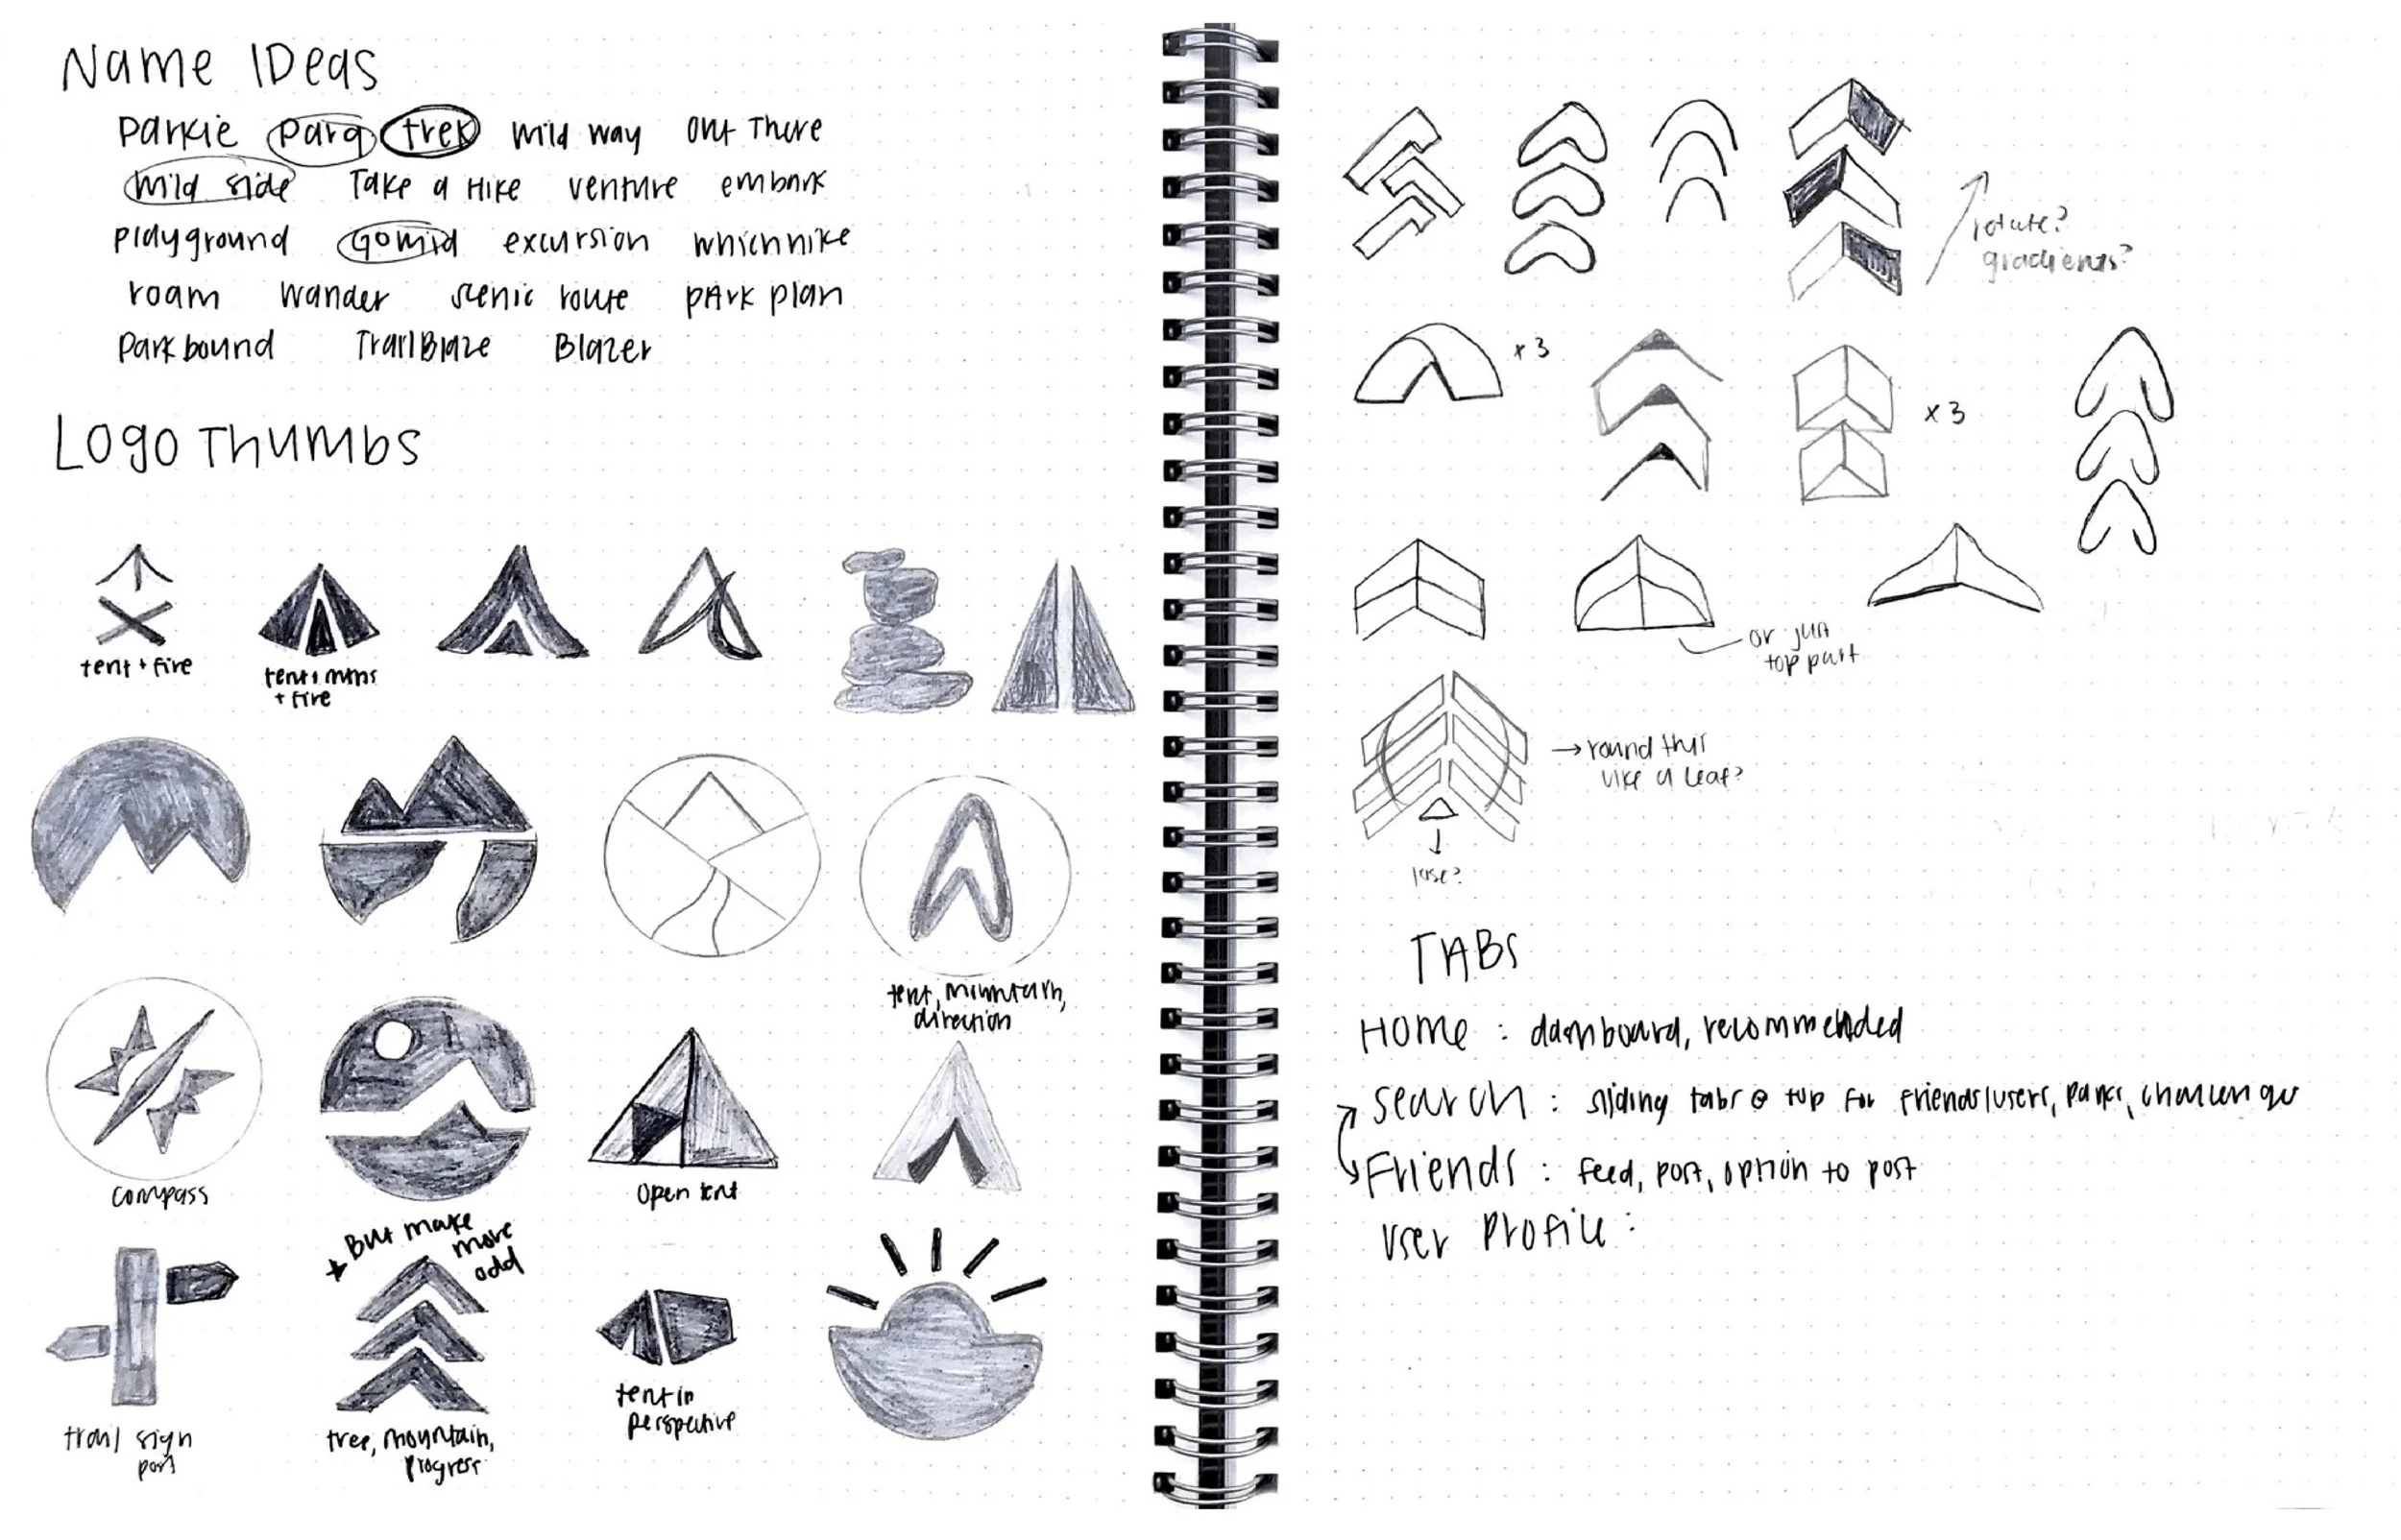 Name Ideas
parkie parq trek wild way out there
wild side Take a Hike venture embark
playground gowild excursion whichhike
roam wander scenic route park plan
Parkbound TrailBlaze Blazer
Logo Thumbs
tent + fire
tent + mtns
+ fire
tent, mountain,
direction
compass
open tent
* But make
more
odd
trail sign
post
tree, mountain,
progress
tent in
perspective
rotate?
gradients?
x 3
x 3
or just
top part
→ round this
like a leaf?
lose?
TABS
Home : dashboard, recommended
search : sliding tabs @ top for friends/users, parks, challenges
Friends : feed, post, option to post
User Profile :